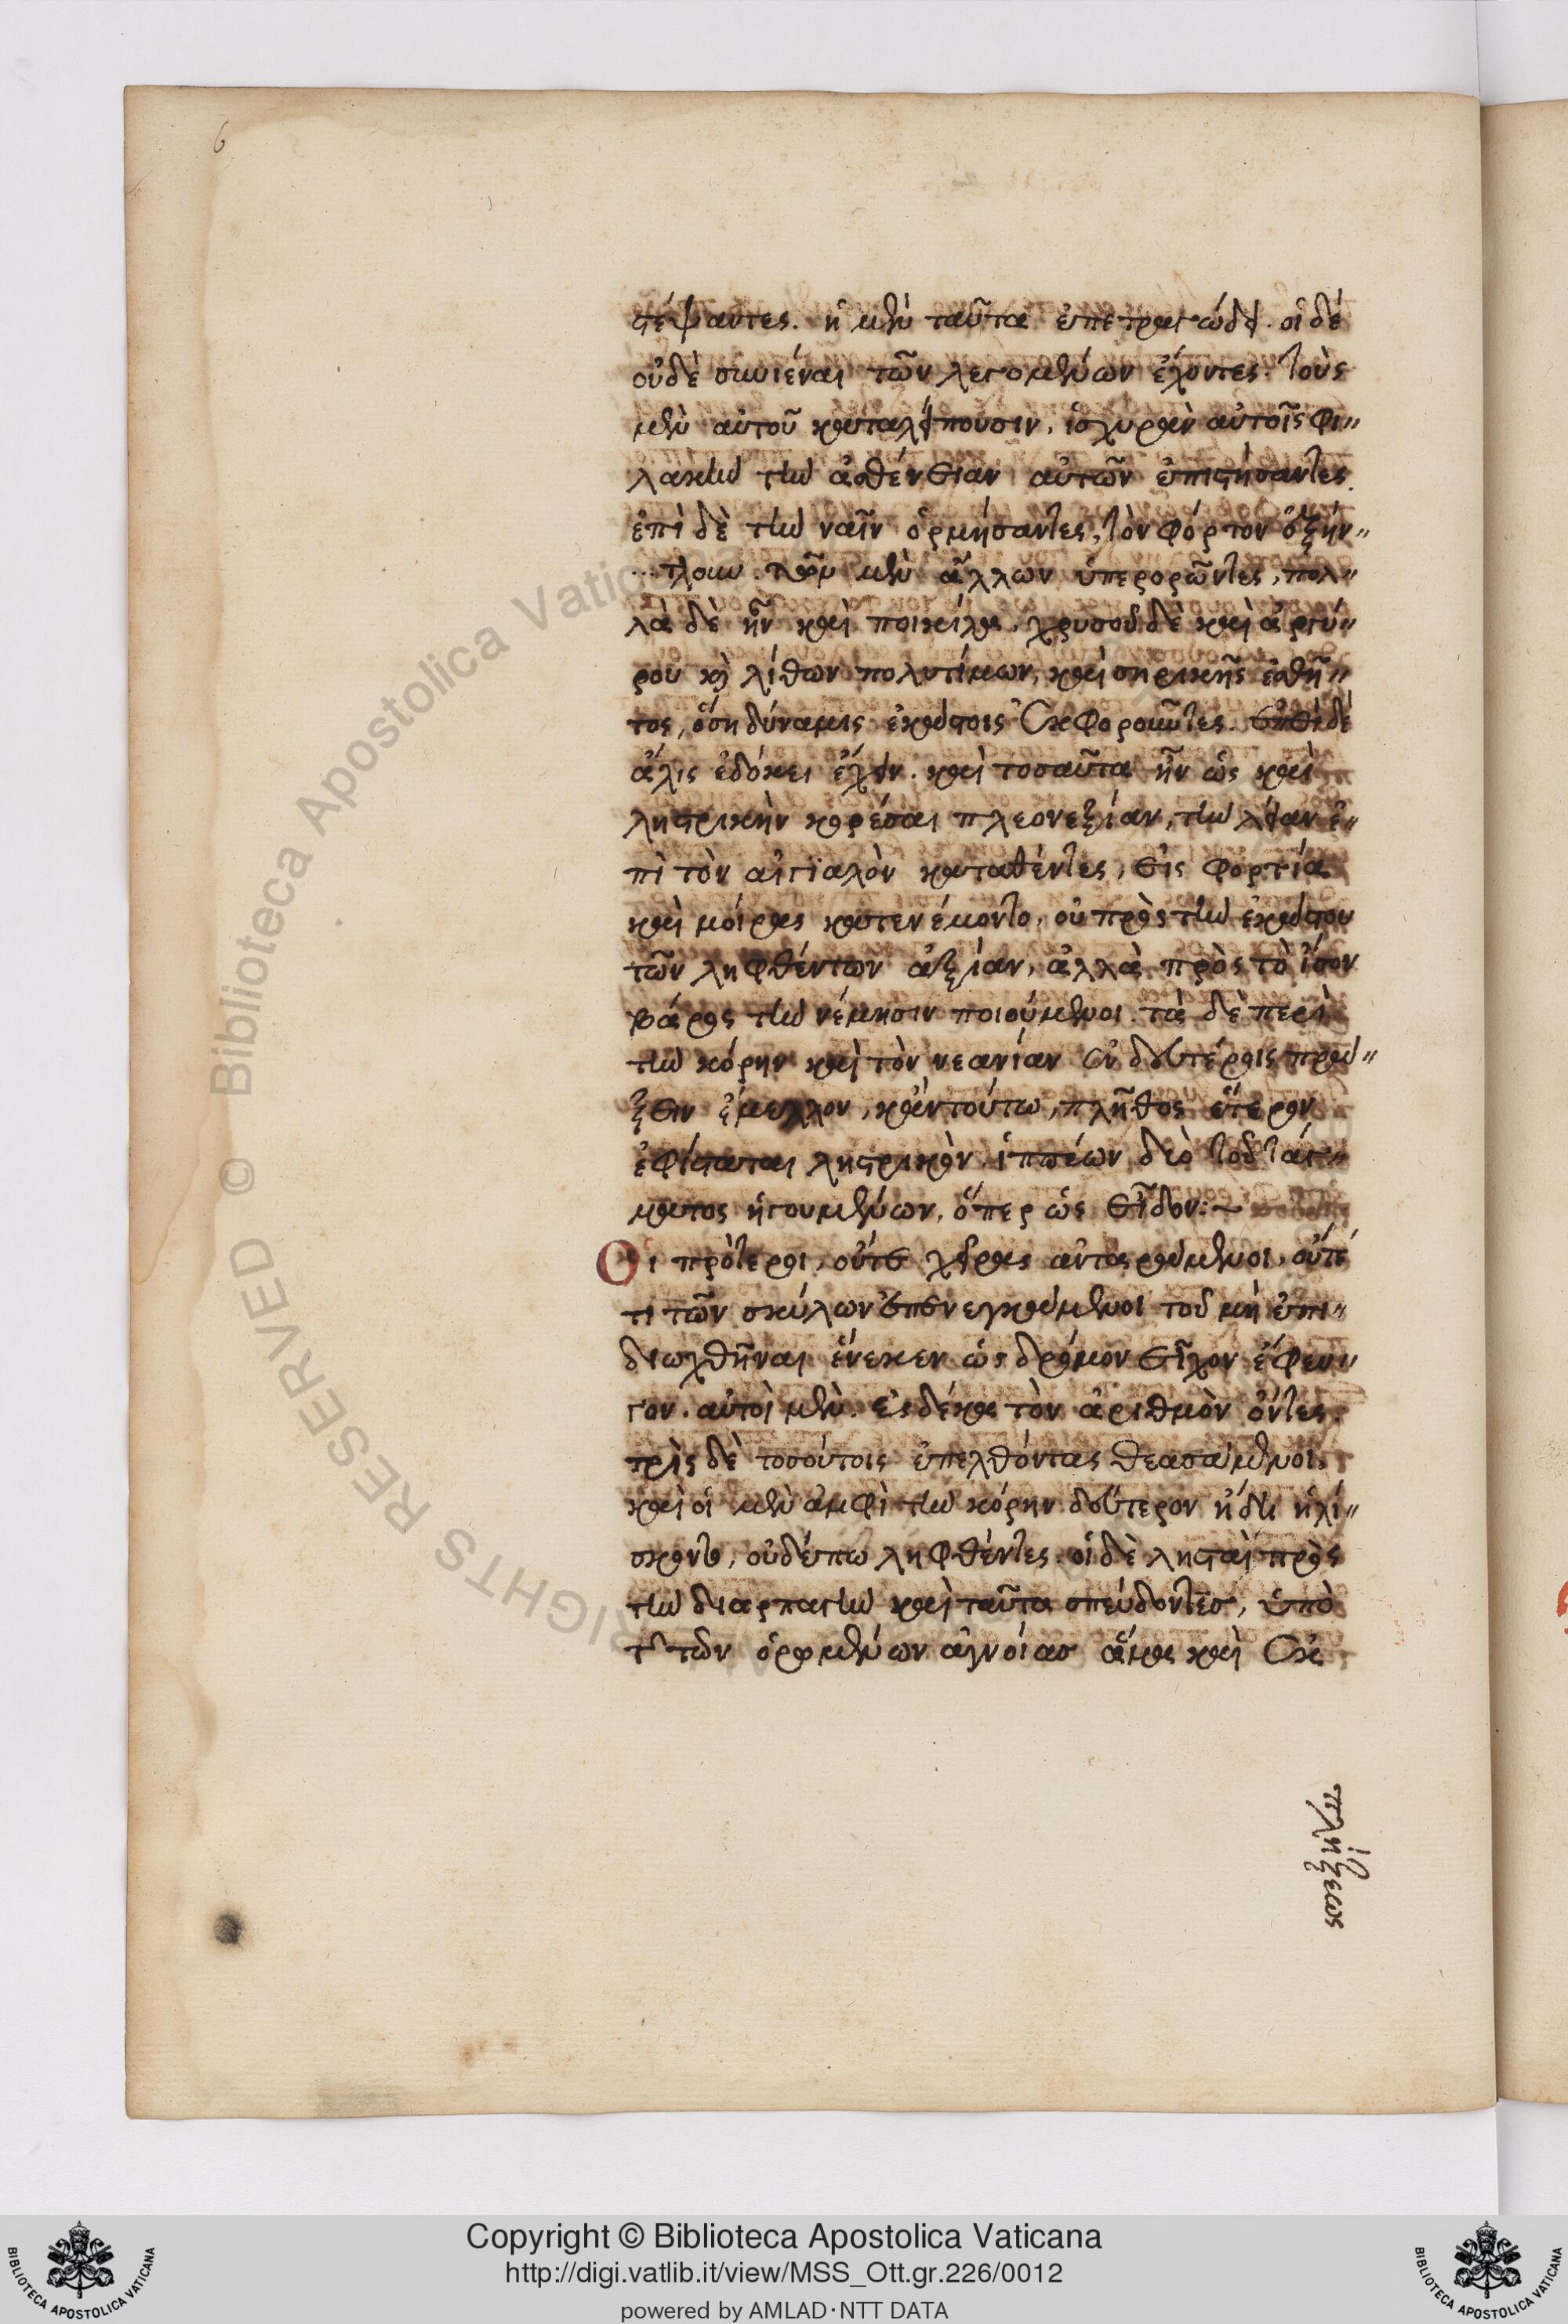 6
στέψαντες. ἡ μὲν ταῦτα ἐπετραγώδει. οἱ δὲ
οὐδὲ συνιέναι τῶν λεγομένων ἔχοντες. τοὺς
μὲν αὐτοῦ καταλείπουσιν, ἰσχυρὰν αὐτοῖς φυ"
λακὴν τὴν ἀσθένειαν αὐτῶν ἐπιστήσαντες.
ἐπὶ δὲ τὴν ναῦν ὁρμήσαντες, τὸν φόρτον ἐξήν"
τλουν. τῶν μὲν ἄλλων ὑπερορῶντες, πολ"
λὰ δὲ ἦν καὶ ποικίλα, χρυσοῦ δὲ καὶ ἀργύ"
ρου κὶ λίθων πολυτίμων, καὶ σηρικῆς ἐσθῆ"
τος, ὅση δύναμις ἑκάστοις ἐκφοροῦντες. ἐπεὶ δὲ
ἅλις ἐδόκει ἔχειν. καὶ τοσαῦτα ἦν ὡς καὶ
ληστρικὴν κορέσαι πλεονεξίαν, τὴν λείαν ἐ"
πὶ τὸν αἰγϊαλὸν καταθέντες, εἰς φορτία
καὶ μοίρας κατενέμοντο, οὐ πρὸς τὴν ἑκάστου
τῶν ληφθέντων ἀξίαν, ἀλλὰ πρὸς τὸ ἴσον
βάρος τὴν νέμησιν ποιούμενοι. τὰ δὲ περὶ
τὴν κόρην καὶ τὸν νεανίαν ἐν δευτέροις πρά"
ξειν ἔμελλον, κἀν τούτω, πλῆθος ἕτερον
ἐφίσταται ληστρικὸν. ἱππέων δύο τοῦ τάγ"
ματος ἡγουμένων, ὅπερ ὡς εἶδον:~
Οἱ πρότεροι, οὔτε χεῖρας ἀνταράμενοι, οὔτέ
τι τῶν σκύλων ἐπενεγκάμενοι τοῦ μὴ ἐπι"
διωχθῆναι ἕνεκεν ὡς δρόμου εἶχον ἔφευ"
γον. αὐτοὶ μὲν. ἐς δέκα τὸν ἀριθμὸν ὄντες.
τρὶς δὲ τοσούτοις ἐπελθόντας θεασάμενοι,
καὶ οἱ μὲν ἀμφὶ τὴν κόρην δεύτερον ἤδη ἡλί"
σκοντο, οὐδέπω ληφθέντες. οἱ δὲ λησταὶ πρὸς
τὴν διαρπαγὴν καὶ ταῦτα σπεύδοντες, ὑπὸ
τῆς τῶν ὁρωμένων ἀγνοίας ἅμα καὶ ἐκ
πλήξεως
© Biblioteca Apostolica Vaticana
RIGHTS RESERVED
Copyright © Biblioteca Apostolica Vaticana
http://digi.vatlib.it/view/MSS_Ott.gr.226/0012
powered by AMLAD·NTT DATA
BIBLIOTECA APOSTOLICA VATICANA
BIBLIOTECA APOSTOLICA VATICANA